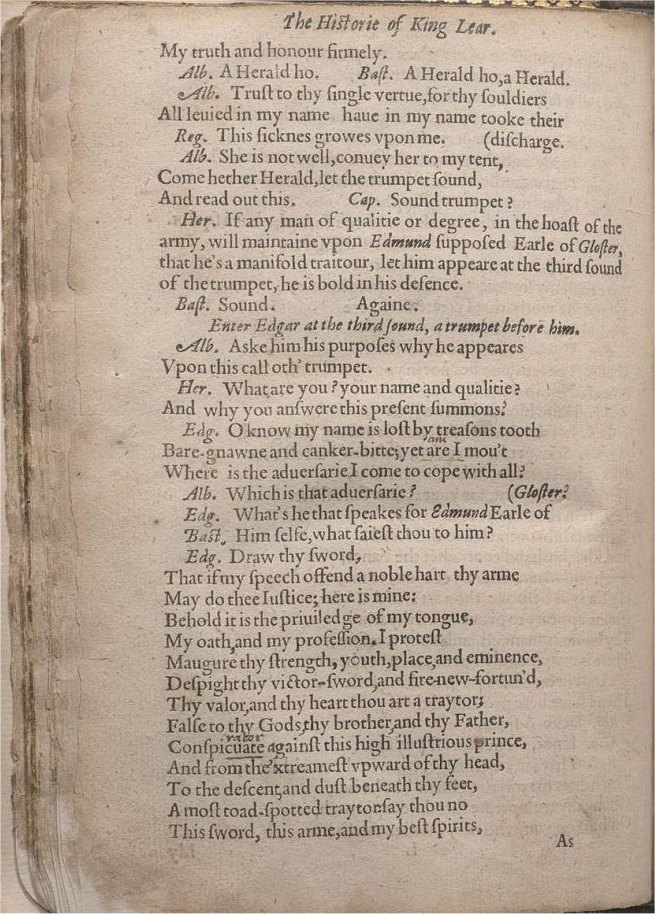 The Historie of King Lear.
My truth and honour firmely.
Alb. A Herald ho. Baſt. A Herald ho, a Herald.
Alb. Truſt to thy ſingle vertue, for thy ſouldiers
All leuied in my name haue in my name tooke their
Reg. This ſicknes growes vpon me. (diſcharge.
Alb. She is not well, conuey her to my tent,
Come hether Herald, let the trumpet ſound,
And read out this. Cap. Sound trumpet?
Her. If any man of qualitie or degree, in the hoaſt of the
army, will maintaine vpon Edmund ſuppoſed Earle of Gloſter,
that he's a manifold traitour, let him appeare at the third ſound
of the trumpet, he is bold in his defence.
Baſt. Sound. Againe.
Enter Edgar at the third ſound, a trumpet before him.
Alb. Aske him his purpoſes why he appeares
Vpon this call oth' trumpet.
Her. What are you? your name and qualitie?
And why you anſwere this preſent ſummons?
Edg. O know my name is loſt by treaſons tooth
am
Bare-gnawne and canker-bitte; yet are I mou't
Where is the aduerſarie I come to cope with all?
Alb. Which is that aduerſarie? (Gloſter?
Edg. What's he that ſpeakes for Edmund Earle of
Baſt. Him ſelfe, what ſaieſt thou to him?
Edg. Draw thy ſword,
That if my ſpeech offend a noble hart thy arme
May do thee Iuſtice; here is mine:
Behold it is the priuiledge of my tongue,
My oath, and my profeſſion. I proteſt
Maugure thy ſtrength, youth, place, and eminence,
Deſpight thy victor-ſword, and fire-new-fortun'd,
Thy valor, and thy heart thou art a traytor;
Falſe to thy Gods, thy brother, and thy Father,
rator
Conſpicuate againſt this high illuſtrious prince,
And from the'xtreameſt vpward of thy head,
To the deſcent, and duſt beneath thy feet,
A moſt toad-ſpotted traytor ſay thou no
This ſword, this arme, and my beſt ſpirits,
As